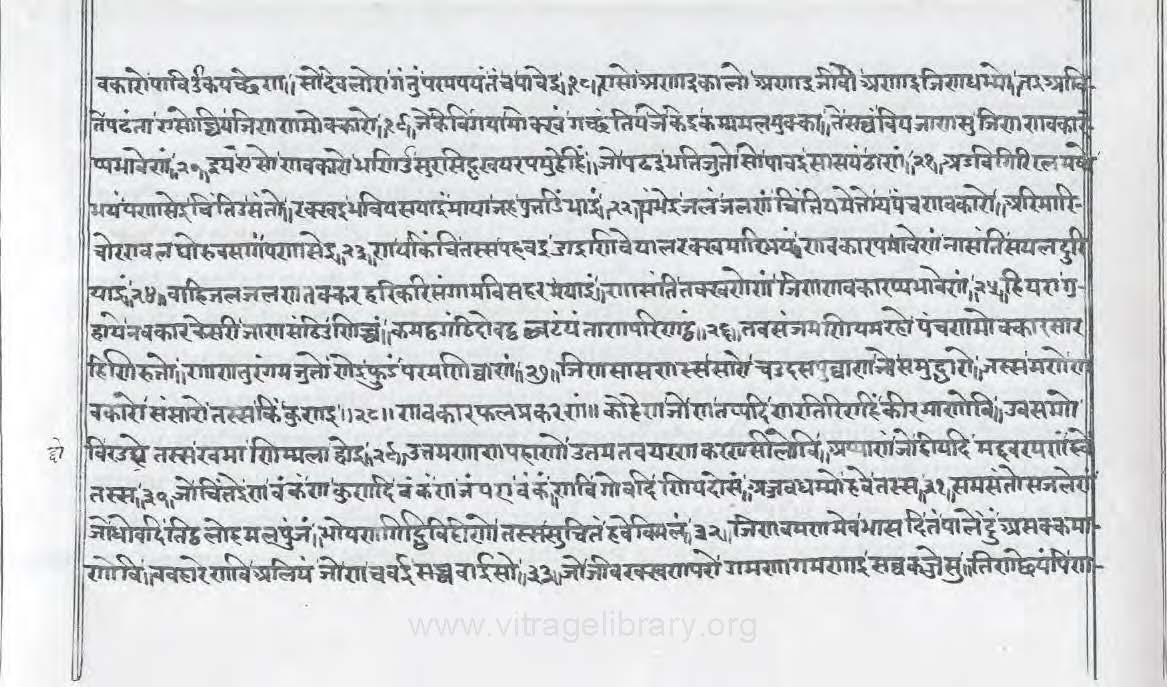 वकारो पाविउं कयच्छेण॥ सो देवलोए गंतुं परमपयं तं च पावेइ॥१८॥एसो अणाइ कालो अणाइ जीवो अणाइ जिणधम्मो॥तइआवि
ते पढंता एसोच्चिय जिणणमोक्कारो॥१९॥जे केवि गया मोक्खं गच्छंति य जे केइ कम्ममलमुक्का॥ते सव्वे विय जाणसु जिणणवकार
प्पभावेण॥२०॥इय एसो णवकारो भणिउं सुरसिद्धखयरपमुहेहिं॥जो पढइ भत्तिजुत्तो सो पावइ सासयं ठाणं॥२१॥अडविगिरिरण्णमज्झे
भयं पणासेइ चिंतिउ संतो॥रक्खइ भवियसयाइं माया जह पुत्तडिंभाइं॥२२॥थंभेइ जलं जलणं चिंतियमेत्तो य पंचणवकारो॥अरिमारि
चोरावलघोरुवसग्गं पणासेइ॥२३॥ण य किंचि तस्स पहवइ डाइणिवेयालरक्खमारिभयं॥णवकारपभावेण नासंति सयल दुरि
याइं॥२४॥वाहिजलजलणतक्करहरिकरिसंगामविसहरभयाइं॥णासंति तक्खणेणं जिणणवकारप्पभावेणं॥२५॥हियएगु
हाये नवकारकेसरी जाण संठिउ णिच्चं॥कम्मट्ठगंठिदोघट्टघट्टयं ताण परिणट्ठं॥२६॥तवसंजमणियमरहो पंचणमोक्कारसार
हिणिरुत्तो॥णाणतुरंगमजुत्तो णेइ फुडं परमणिव्वाणं॥२७॥जिणसासणस्स सारो चउदसपुव्वाण जो समुद्धारो॥जस्स मणे ण
वकारो संसारो तस्स किं कुणइ॥२८॥णवकारफलप्रकरणं॥ कोहेण जो ण तप्पदि णरतिरिएहिं कीरमाणो वि॥उवसग्गे
वि रउद्दे तस्स खमा णिम्मला होइ॥२९॥उत्तमणाणपहाणो उत्तमतवयरणकरणसीलो वि॥अप्पाणं जो हीयदि मद्दवरयणं हवे
द्दो
तस्स॥३०॥जो चिंतेइ ण वंकं ण कुणदि वंकं ण जंपए वंकं॥ण वि गोवदि णियदोसं॥अज्जवधम्मो हवे तस्स॥३१॥समसंतोसजलेणं
जो धोवदि तिट्ठलोहमलपुंजं॥भोयणगिद्धिविहीणो तस्स सुचित्तं हवे विमलं॥३२॥जिणवयणमेव भासदि तं पालेदुं असक्कमा
णो वि॥ववहारेण वि अलियं जो ण चवई सच्चवाई सो॥३३॥जो जीवरक्खणपरो गमणागमणाइ सव्वकज्जेसु॥तिणछेयंपि ण
www.vitragelibrary.org